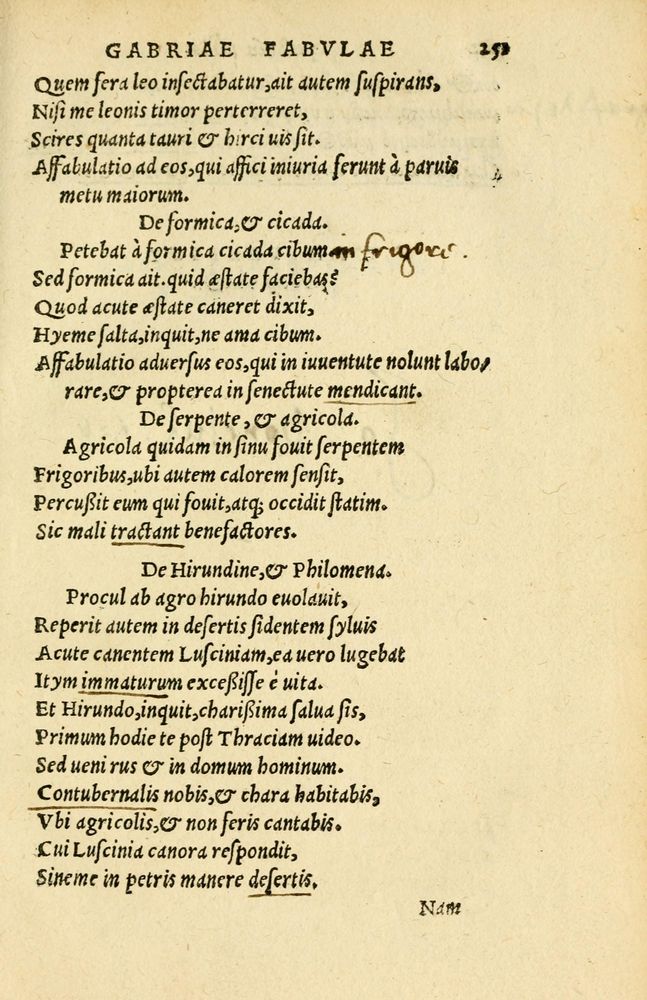 GABRIAE FABVLAE 251
Quem fera leo insectabatur,ait autem suspirans,
Nisi me leonis timor perterreret,
Scires quanta tauri & hirci uis sit.
Affabulatio ad eos,qui affici iniuria ferunt à paruis
metu maiorum.
De formica,& cicada.
Petebat à formica cicada cibum in frigore.
Sed formica ait.quid æstate faciebas?
Quod acute æstate caneret dixit,
Hyeme salta,inquit,ne ama cibum.
Affabulatio aduersus eos,qui in iuuentute nolunt labo,
rare,& propterea in senectute mendicant.
De serpente, & agricola.
Agricola quidam in sinu fouit serpentem
Frigoribus,ubi autem calorem sensit,
Percußit eum qui fouit,atq; occidit statim.
Sic mali tractant benefactores.
De Hirundine,& Philomena.
Procul ab agro hirundo euolauit,
Reperit autem in desertis sidentem syluis
Acute canentem Lusciniam,ea uero lugebat
Itym immaturum exceßisse è uita.
Et Hirundo,inquit,charißima salua sis,
Primum hodie te post Thraciam uideo.
Sed ueni rus & in domum hominum.
Contubernalis nobis,& chara habitabis,
Vbi agricolis,& non feris cantabis.
Cui Luscinia canora respondit,
Sine me in petris manere desertis.
Nam